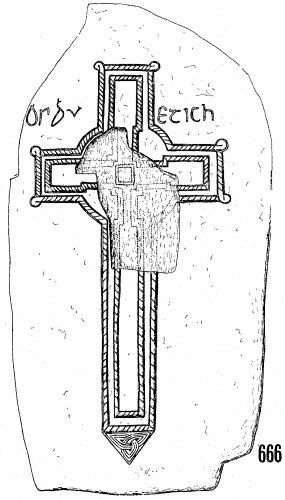 or du etich
666